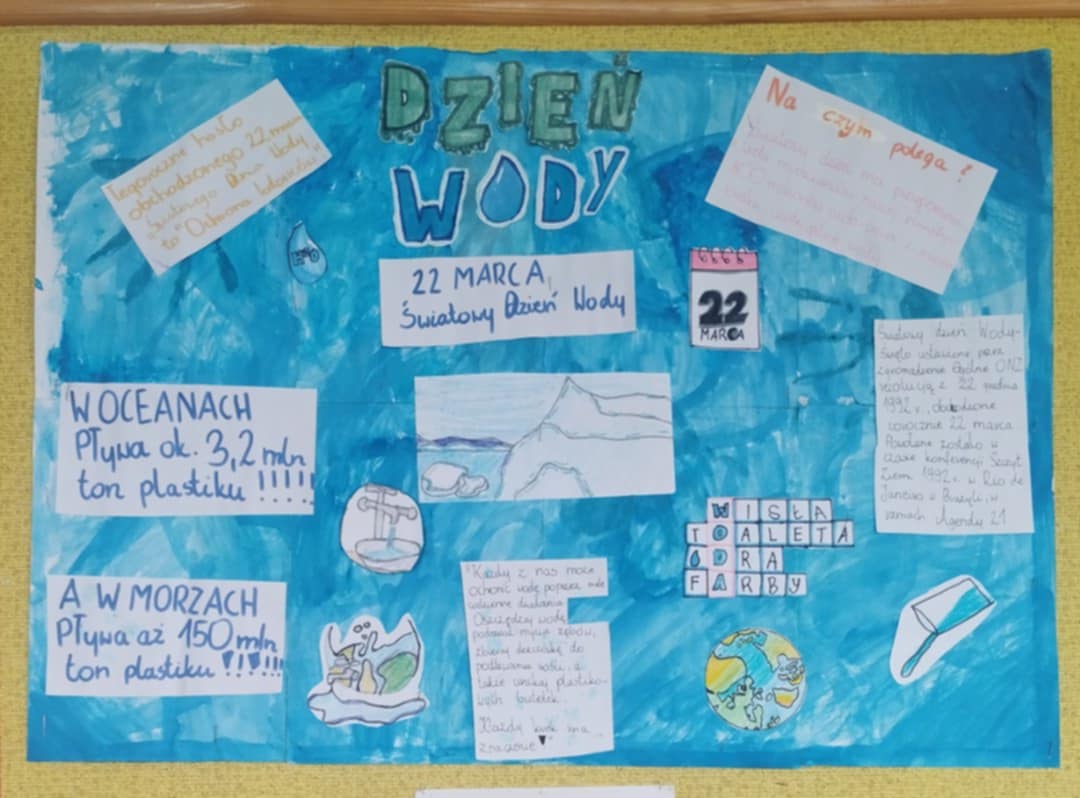 DZIEŃ
WODY
Tegoroczne hasło
obchodzonego 22 marca
"Światowego Dnia Wody"
to "Ochrona lodowców"
Na czym polega?
Światowy dzień ma
22 MARCA
Światowy Dzień Wody
22
MARCA
W OCEANACH
Pływa ok. 3,2 mln
ton plastiku !!!!!
Światowy dzień Wody-
święto ustanowione przez
zgromadzenie Ogólne ONZ
rezolucją z 22 grudnia
1992 r., obchodzone
corocznie 22 marca
Powołane zostało w
czasie konferencji Szczyt
Ziemi 1992 r. w Rio de
Janeiro w Brazylii, w
ramach Agendy 21
WISŁA
TOALETA
ODRA
FARBY
A W MORZACH
Pływa aż 150 mln
ton plastiku !!!!!!
"Każdy z nas może
ochronić wodę poprzez małe
codzienne działania
Oszczędzaj wodę
podczas mycia zębów,
zbieraj deszczówkę do
podlewania roślin, a
także unikaj plastiko-
wych butelek.
Każdy krok ma
znaczenie